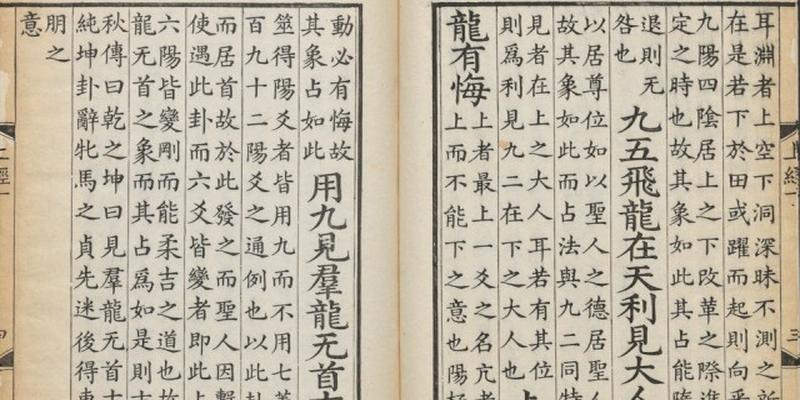 耳淵者上空下洞深昧不測之所
在是若下於田或躍而起則向乎
九陽四陰居上之下改革之際進
定之時也故其象如此其占能隨
退則无
咎也
九五飛龍在天利見大人
以居尊位如以聖人之德居聖人
故其象如此而占法與九二同特
見者在上之大人耳若有其位
則爲利見九二在下之大人也
上
龍有悔
上者最上一爻之名亢者
上而不能下之意也陽極
動必有悔故
其象占如此
用九見羣龍无首吉
筮得陽爻者皆用九而不用七蓋
百九十二陽爻之通例也以此卦
而居首故於此發之而聖人因繫
使遇此卦而六爻皆變者即此占
六陽皆變剛而能柔吉之道也故
龍无首之象而其占爲如是則吉
秋傳曰乾之坤曰見羣龍无首吉
純坤卦辭牝馬之貞先迷後得東
朋之
意
上經
三
上經
四